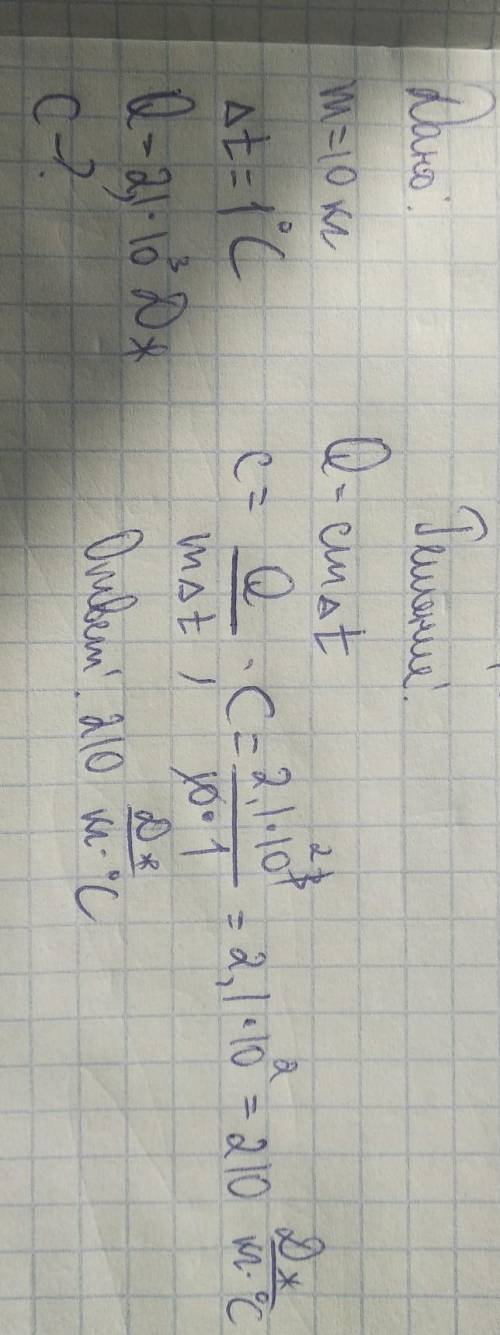 Дано:
m = 10 кг
Δt = 1°C
Q = 2,1·10³ Дж
C - ?
Решение:
Q = cmΔt
c = Q/mΔt, C = 2,1·10³²/10·1 = 2,1·10² = 210 Дж/кг·°C
Ответ: 210 Дж/кг·°C